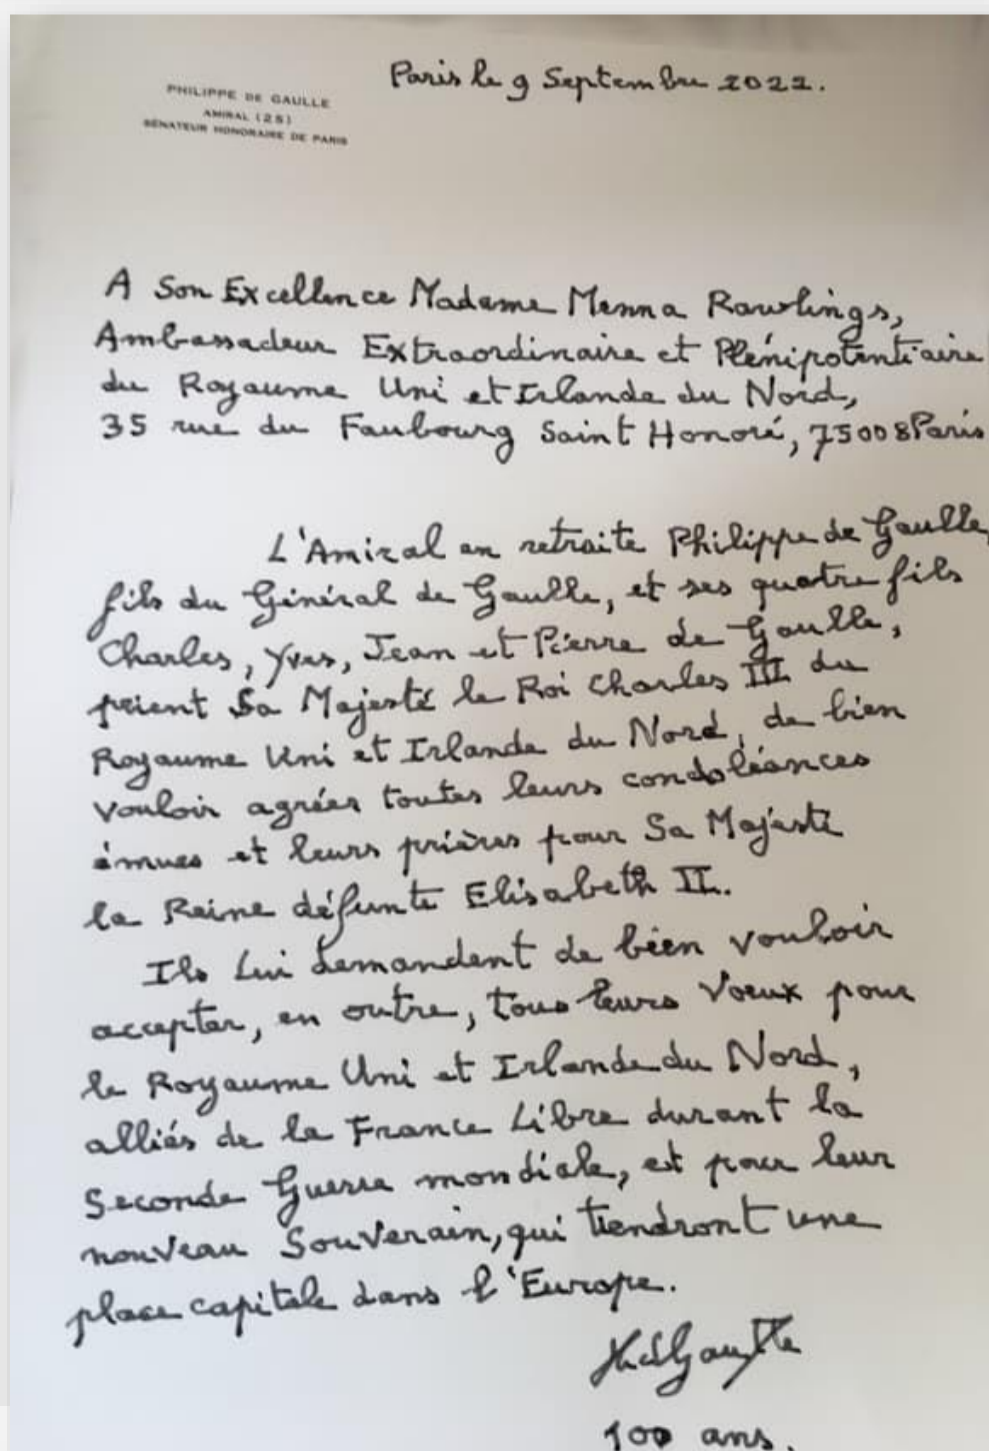 Paris le 9 Septembre 2022.
PHILIPPE DE GAULLE
AMIRAL (2S)
SÉNATEUR HONORAIRE DE PARIS
A Son Excellence Madame Menna Rawlings,
Ambassadeur Extraordinaire et Plénipotentiaire
du Royaume Uni et Irlande du Nord,
35 rue du Faubourg Saint Honoré, 75008 Paris
L'Amiral en retraite Philippe de Gaulle,
fils du Général de Gaulle, et ses quatre fils
Charles, Yves, Jean et Pierre de Gaulle,
prient Sa Majesté le Roi Charles III du
Royaume Uni et Irlande du Nord, de bien
vouloir agréer toutes leurs condoléances
émues et leurs prières pour Sa Majesté
la Reine défunte Elisabeth II.
Ils Lui demandent de bien vouloir
accepter, en outre, tous leurs Voeux pour
le Royaume Uni et Irlande du Nord,
alliés de la France Libre durant la
Seconde Guerre mondiale, et pour leur
nouveau Souverain, qui tiendront une
place capitale dans l'Europe.
Ph de Gaulle
100 ans.